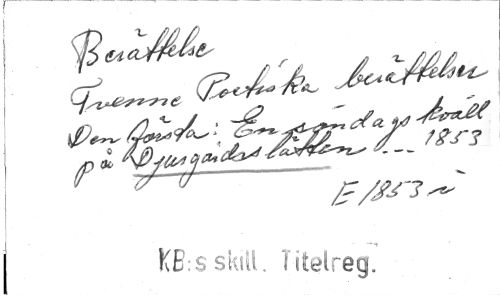 Berättelse
Tvenne Poetiska berättelser
Den första: En söndags kväll
på Djurgårdsslätten ... 1853
E 1853 i
KB:s skill. Titelreg.